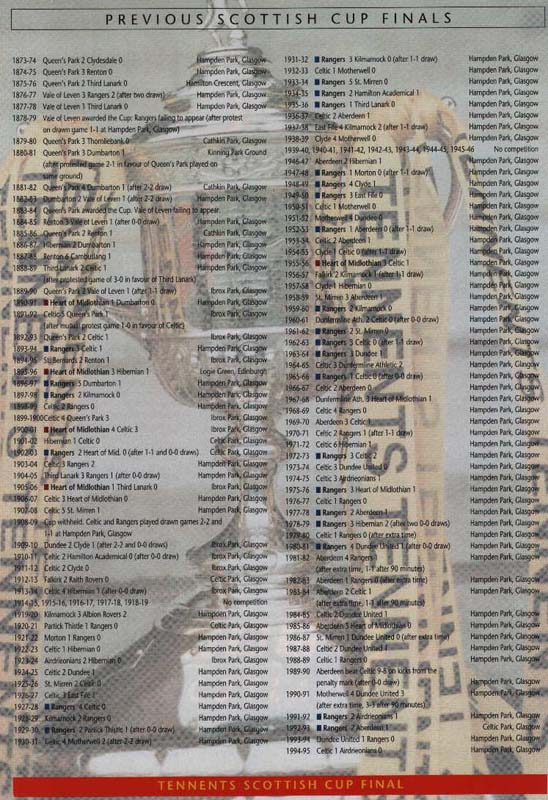 PREVIOUS SCOTTISH CUP FINALS
1873-74 Queen's Park 2 Clydesdale 0 Hampden Park, Glasgow
1874-75 Queen's Park 3 Renton 0 Hampden Park, Glasgow
1875-76 Queen's Park 2 Third Lanark 0 Hamilton Crescent, Glasgow
1876-77 Vale of Leven 3 Rangers 2 (after two draws) Hampden Park, Glasgow
1877-78 Vale of Leven 1 Third Lanark 0 Hampden Park, Glasgow
1878-79 Vale of Leven awarded the Cup: Rangers failing to appear (after protest
on drawn game 1-1 at Hampden Park, Glasgow)
1879-80 Queen's Park 3 Thornliebank 0 Cathkin Park, Glasgow
1880-81 Queen's Park 3 Dumbarton 1 Kinning Park Ground
(after protested game 2-1 in favour of Queen's Park played on
same ground)
1881-82 Queen's Park 4 Dumbarton 1 (after 2-2 draw) Cathkin Park, Glasgow
1882-83 Dumbarton 2 Vale of Leven 1 (after 2-2 draw) Hampden Park, Glasgow
1883-84 Queen's Park awarded the Cup: Vale of Leven failing to appear.
1884-85 Renton 3 Vale of Leven 1 (after 0-0 draw) Hampden Park, Glasgow
1885-86 Queen's Park 2 Renton 1 Cathkin Park, Glasgow
1886-87 Hibernian 2 Dumbarton 1 Hampden Park, Glasgow
1887-88 Renton 6 Cambuslang 1 Hampden Park, Glasgow
1888-89 Third Lanark 2 Celtic 1 Hampden Park, Glasgow
(after protested game of 3-0 in favour of Third Lanark)
1889-90 Queen's Park 2 Vale of Leven 1 (after 1-1 draw) Ibrox Park, Glasgow
1890-91 Heart of Midlothian 1 Dumbarton 0 Hampden Park, Glasgow
1891-92 Celtic 5 Queen's Park 1 Ibrox Park, Glasgow
(after mutual protest game 1-0 in favour of Celtic)
1892-93 Queen's Park 2 Celtic 1 Ibrox Park, Glasgow
1893-94 Rangers 3 Celtic 1 Hampden Park, Glasgow
1894-95 St. Bernards 2 Renton 1 Ibrox Park, Glasgow
1895-96 Heart of Midlothian 3 Hibernian 1 Logie Green, Edinburgh
1896-97 Rangers 5 Dumbarton 1 Hampden Park, Glasgow
1897-98 Rangers 2 Kilmarnock 0 Hampden Park, Glasgow
1898-99 Celtic 2 Rangers 0 Hampden Park, Glasgow
1899-1900 Celtic 4 Queen's Park 3 Ibrox Park, Glasgow
1900-01 Heart of Midlothian 4 Celtic 3 Ibrox Park, Glasgow
1901-02 Hibernian 1 Celtic 0 Celtic Park, Glasgow
1902-03 Rangers 2 Heart of Mid. 0 (after 1-1 and 0-0 draws) Celtic Park, Glasgow
1903-04 Celtic 3 Rangers 2 Hampden Park, Glasgow
1904-05 Third Lanark 3 Rangers 1 (after 0-0 draw) Hampden Park, Glasgow
1905-06 Heart of Midlothian 1 Third Lanark 0 Ibrox Park, Glasgow
1906-07 Celtic 3 Heart of Midlothian 0 Hampden Park, Glasgow
1907-08 Celtic 5 St. Mirren 1 Hampden Park, Glasgow
1908-09 Cup withheld. Celtic and Rangers played drawn games 2-2 and
1-1 at Hampden Park, Glasgow
1909-10 Dundee 2 Clyde 1 (after 2-2 and 0-0 draws) Ibrox Park, Glasgow
1910-11 Celtic 2 Hamilton Academical 0 (after 0-0 draw) Ibrox Park, Glasgow
1911-12 Celtic 2 Clyde 0 Ibrox Park, Glasgow
1912-13 Falkirk 2 Raith Rovers 0 Celtic Park, Glasgow
1913-14 Celtic 4 Hibernian 1 (after 0-0 draw) Ibrox Park, Glasgow
1914-15, 1915-16, 1916-17, 1917-18, 1918-19 No competition
1919-20 Kilmarnock 3 Albion Rovers 2 Hampden Park, Glasgow
1920-21 Partick Thistle 1 Rangers 0 Celtic Park, Glasgow
1921-22 Morton 1 Rangers 0 Hampden Park, Glasgow
1922-23 Celtic 1 Hibernian 0 Hampden Park, Glasgow
1923-24 Airdrieonians 2 Hibernian 0 Ibrox Park, Glasgow
1924-25 Celtic 2 Dundee 1 Hampden Park, Glasgow
1925-26 St. Mirren 2 Celtic 0 Hampden Park, Glasgow
1926-27 Celtic 3 East Fife 1 Hampden Park, Glasgow
1927-28 Rangers 4 Celtic 0 Hampden Park, Glasgow
1928-29 Kilmarnock 2 Rangers 0 Hampden Park, Glasgow
1929-30 Rangers 2 Partick Thistle 1 (after 0-0 draw) Hampden Park, Glasgow
1930-31 Celtic 4 Motherwell 2 (after 2-2 draw) Hampden Park, Glasgow
1931-32 Rangers 3 Kilmarnock 0 (after 1-1 draw) Hampden Park, Glasgow
1932-33 Celtic 1 Motherwell 0 Hampden Park, Glasgow
1933-34 Rangers 5 St. Mirren 0 Hampden Park, Glasgow
1934-35 Rangers 2 Hamilton Academical 1 Hampden Park, Glasgow
1935-36 Rangers 1 Third Lanark 0 Hampden Park, Glasgow
1936-37 Celtic 2 Aberdeen 1 Hampden Park, Glasgow
1937-38 East Fife 4 Kilmarnock 2 (after 1-1 draw) Hampden Park, Glasgow
1938-39 Clyde 4 Motherwell 0 Hampden Park, Glasgow
1939-40, 1940-41, 1941-42, 1942-43, 1943-44, 1944-45, 1945-46 No competition
1946-47 Aberdeen 2 Hibernian 1 Hampden Park, Glasgow
1947-48 Rangers 1 Morton 0 (after 1-1 draw) Hampden Park, Glasgow
1948-49 Rangers 4 Clyde 1 Hampden Park, Glasgow
1949-50 Rangers 3 East Fife 0 Hampden Park, Glasgow
1950-51 Celtic 1 Motherwell 0 Hampden Park, Glasgow
1951-52 Motherwell 4 Dundee 0 Hampden Park, Glasgow
1952-53 Rangers 1 Aberdeen 0 (after 1-1 draw) Hampden Park, Glasgow
1953-54 Celtic 2 Aberdeen 1 Hampden Park, Glasgow
1954-55 Clyde 1 Celtic 0 (after 1-1 draw) Hampden Park, Glasgow
1955-56 Heart of Midlothian 3 Celtic 1 Hampden Park, Glasgow
1956-57 Falkirk 2 Kilmarnock 1 (after 1-1 draw) Hampden Park, Glasgow
1957-58 Clyde 1 Hibernian 0 Hampden Park, Glasgow
1958-59 St. Mirren 3 Aberdeen 1 Hampden Park, Glasgow
1959-60 Rangers 2 Kilmarnock 0 Hampden Park, Glasgow
1960-61 Dunfermline Ath. 2 Celtic 0 (after 0-0 draw) Hampden Park, Glasgow
1961-62 Rangers 2 St. Mirren 0 Hampden Park, Glasgow
1962-63 Rangers 3 Celtic 0 (after 1-1 draw) Hampden Park, Glasgow
1963-64 Rangers 3 Dundee 1 Hampden Park, Glasgow
1964-65 Celtic 3 Dunfermline Athletic 2 Hampden Park, Glasgow
1965-66 Rangers 1 Celtic 0 (after 0-0 draw) Hampden Park, Glasgow
1966-67 Celtic 2 Aberdeen 0 Hampden Park, Glasgow
1967-68 Dunfermline Ath. 3 Heart of Midlothian 1 Hampden Park, Glasgow
1968-69 Celtic 4 Rangers 0 Hampden Park, Glasgow
1969-70 Aberdeen 3 Celtic 1 Hampden Park, Glasgow
1970-71 Celtic 2 Rangers 1 (after 1-1 draw) Hampden Park, Glasgow
1971-72 Celtic 6 Hibernian 1 Hampden Park, Glasgow
1972-73 Rangers 3 Celtic 2 Hampden Park, Glasgow
1973-74 Celtic 3 Dundee United 0 Hampden Park, Glasgow
1974-75 Celtic 3 Airdrieonians 1 Hampden Park, Glasgow
1975-76 Rangers 3 Heart of Midlothian 1 Hampden Park, Glasgow
1976-77 Celtic 1 Rangers 0 Hampden Park, Glasgow
1977-78 Rangers 2 Aberdeen 1 Hampden Park, Glasgow
1978-79 Rangers 3 Hibernian 2 (after two 0-0 draws) Hampden Park, Glasgow
1979-80 Celtic 1 Rangers 0 (after extra time) Hampden Park, Glasgow
1980-81 Rangers 4 Dundee United 1 (after 0-0 draw) Hampden Park, Glasgow
1981-82 Aberdeen 4 Rangers 1 Hampden Park, Glasgow
(after extra time, 1-1 after 90 minutes)
1982-83 Aberdeen 1 Rangers 0 (after extra time) Hampden Park, Glasgow
1983-84 Aberdeen 2 Celtic 1 Hampden Park, Glasgow
(after extra time, 1-1 after 90 minutes)
1984-85 Celtic 2 Dundee United 1 Hampden Park, Glasgow
1985-86 Aberdeen 3 Heart of Midlothian 0 Hampden Park, Glasgow
1986-87 St. Mirren 1 Dundee United 0 (after extra time) Hampden Park, Glasgow
1987-88 Celtic 2 Dundee United 1 Hampden Park, Glasgow
1988-89 Celtic 1 Rangers 0 Hampden Park, Glasgow
1989-90 Aberdeen beat Celtic 9-8 on kicks from the
penalty mark (after 0-0 draw) Hampden Park, Glasgow
1990-91 Motherwell 4 Dundee United 3 Hampden Park, Glasgow
(after extra time, 3-3 after 90 minutes)
1991-92 Rangers 2 Airdrieonians 1 Hampden Park, Glasgow
1992-93 Rangers 2 Aberdeen 1 Celtic Park, Glasgow
1993-94 Dundee United 1 Rangers 0 Hampden Park, Glasgow
1994-95 Celtic 1 Airdrieonians 0 Hampden Park, Glasgow
TENNENTS SCOTTISH CUP FINAL